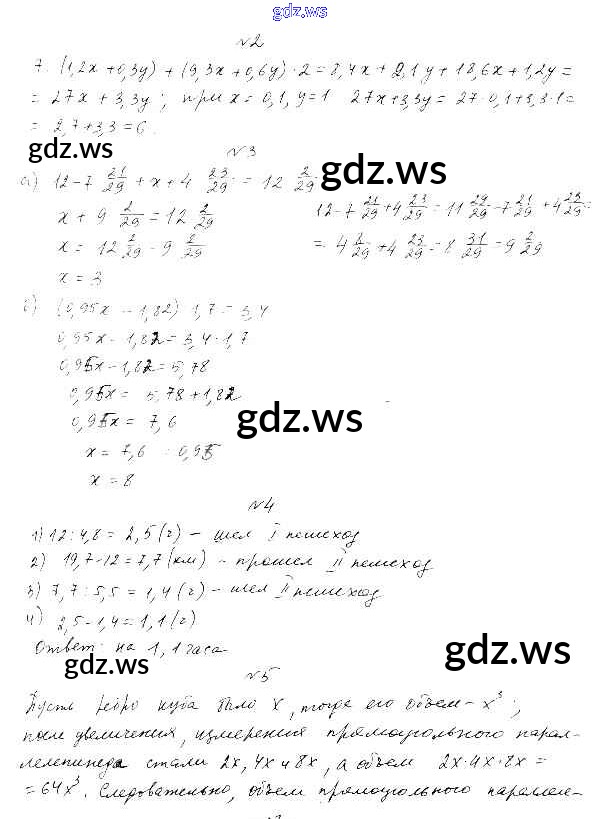 gdz.ws
№2
7. (1,2x + 0,3y) + (9,3x + 0,6y) · 2 = 8,4x + 2,1y + 18,6x + 1,2y =
= 27x + 3,3y; при x = 0,1, y = 1 27x + 3,3y = 27 · 0,1 + 3,3 · 1 =
= 2,7 + 3,3 = 6.
gdz.ws
№3
gdz.ws
а) 12 - 7 21/29 + x + 4 23/29 = 12 2/29
12 - 7 21/29 + 4 23/29 = 11 29/29 - 7 21/29 + 4 23/29 =
x + 9 2/29 = 12 2/29
= 4 8/29 + 4 23/29 = 8 31/29 = 9 2/29
x = 12 2/29 - 9 2/29
x = 3
б) (0,95x - 1,82) 1,7 = 3,4
0,95x - 1,82 = 3,4 · 1,7
0,95x - 1,82 = 5,78
0,95x = 5,78 + 1,82
0,95x = 7,6
gdz.ws
x = 7,6 : 0,95
x = 8
№4
1) 12 : 4,8 = 2,5 (г) - шел I пешеход
2) 19,7 - 12 = 7,7 (км) - прошел II пешеход
3) 7,7 : 5,5 = 1,4 (г) - шел II пешеход
4) 2,5 - 1,4 = 1,1 (г)
Ответ: на 1,1 часа
gdz.ws
gdz.ws
№5
Пусть ребро куба было x, тогда его объем - x³;
после увеличения, измерения прямоугольного парал-
лелепипеда стали 2x, 4x и 8x, а объем 2x · 4x · 8x =
= 64x³. Следовательно, объем прямоугольного параллеле-